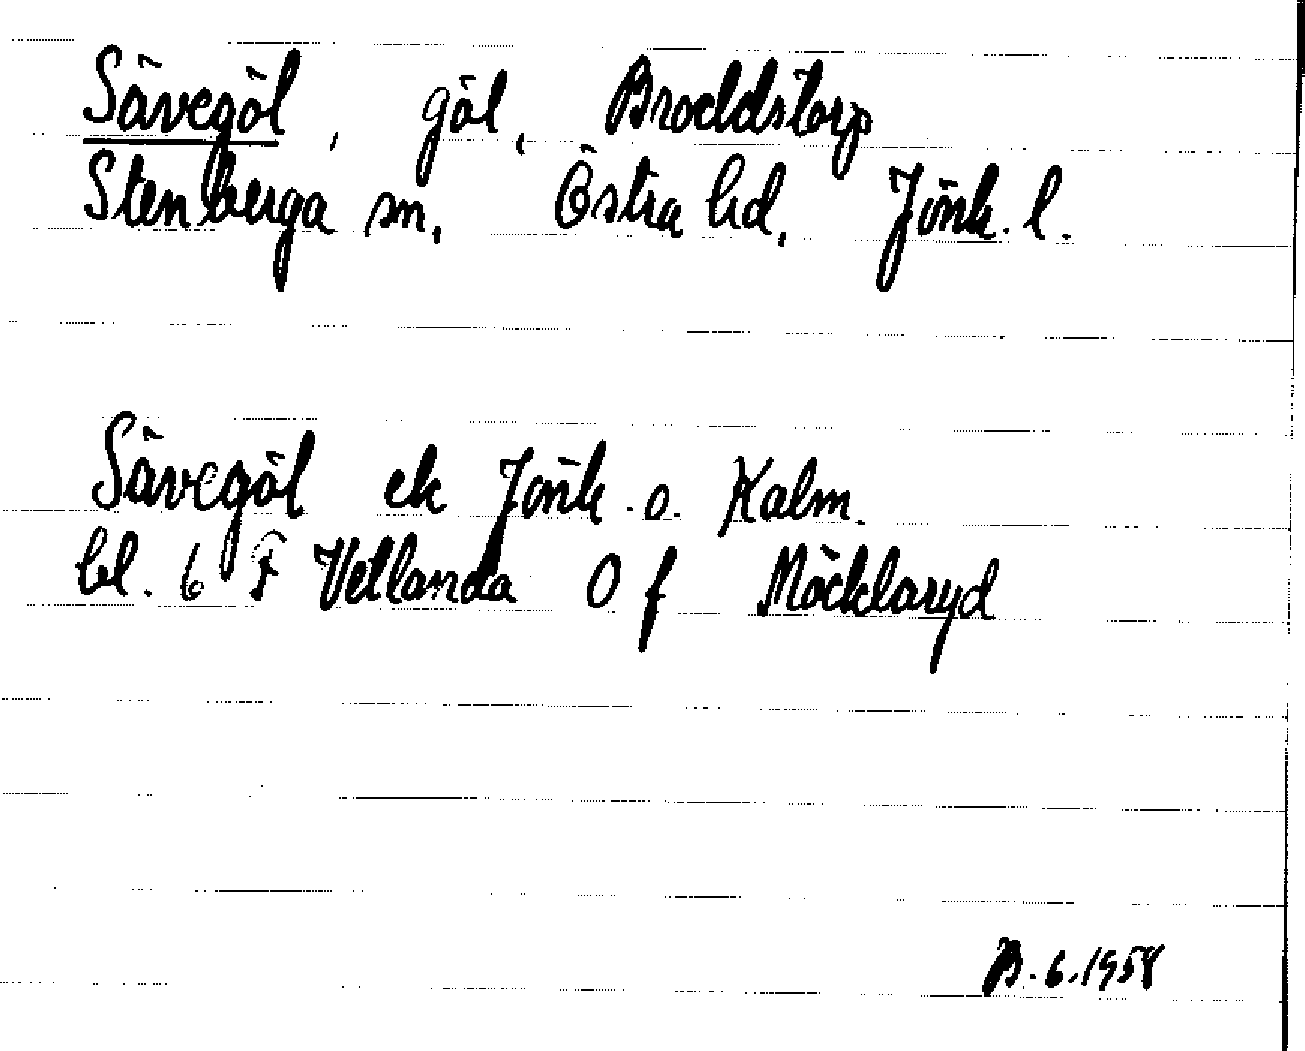 Sävegöl, göl, Broddstorp
Stenberga sn. Östra hd. Jönk. l.
Sävegöl ek Jönk. o. Kalm.
bl. 6 F Vetlanda 0 f Möcklaryd
B. 6. 1958